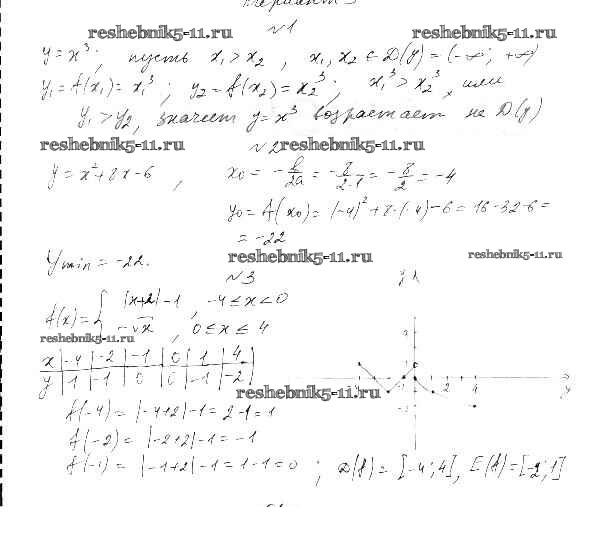 Вариант 3
№1
reshebnik5-11.ru reshebnik5-11.ru
y = x³; пусть x₁ > x₂, x₁, x₂ ∈ D(y) = (-∞; +∞)
y₁ = f(x₁) = x₁³; y₂ = f(x₂) = x₂³; x₁³ > x₂³, или
y₁ > y₂, значит y = x³ возрастает на D(y)
reshebnik5-11.ru №2 reshebnik5-11.ru
y = x² + 8x - 6, x₀ = -b/2a = -8/2·1 = -8/2 = -4
y₀ = f(x₀) = (-4)² + 8·(-4) - 6 = 16 - 32 - 6 =
= -22
Ymin = -22.
reshebnik5-11.ru reshebnik5-11.ru
№3
f(x) = { |x+2| - 1, -4 ≤ x < 0
-√x, 0 ≤ x ≤ 4
reshebnik5-11.ru
x | -4 | -2 | -1 | 0 | 1 | 4
y | 1 | -1 | 0 | 0 | -1 | -2
reshebnik5-11.ru
f(-4) = |-4+2| - 1 = 2 - 1 = 1
f(-2) = |-2+2| - 1 = -1
f(-1) = |-1+2| - 1 = 1 - 1 = 0; D(f) = [-4; 4], E(f) = [-2; 1]